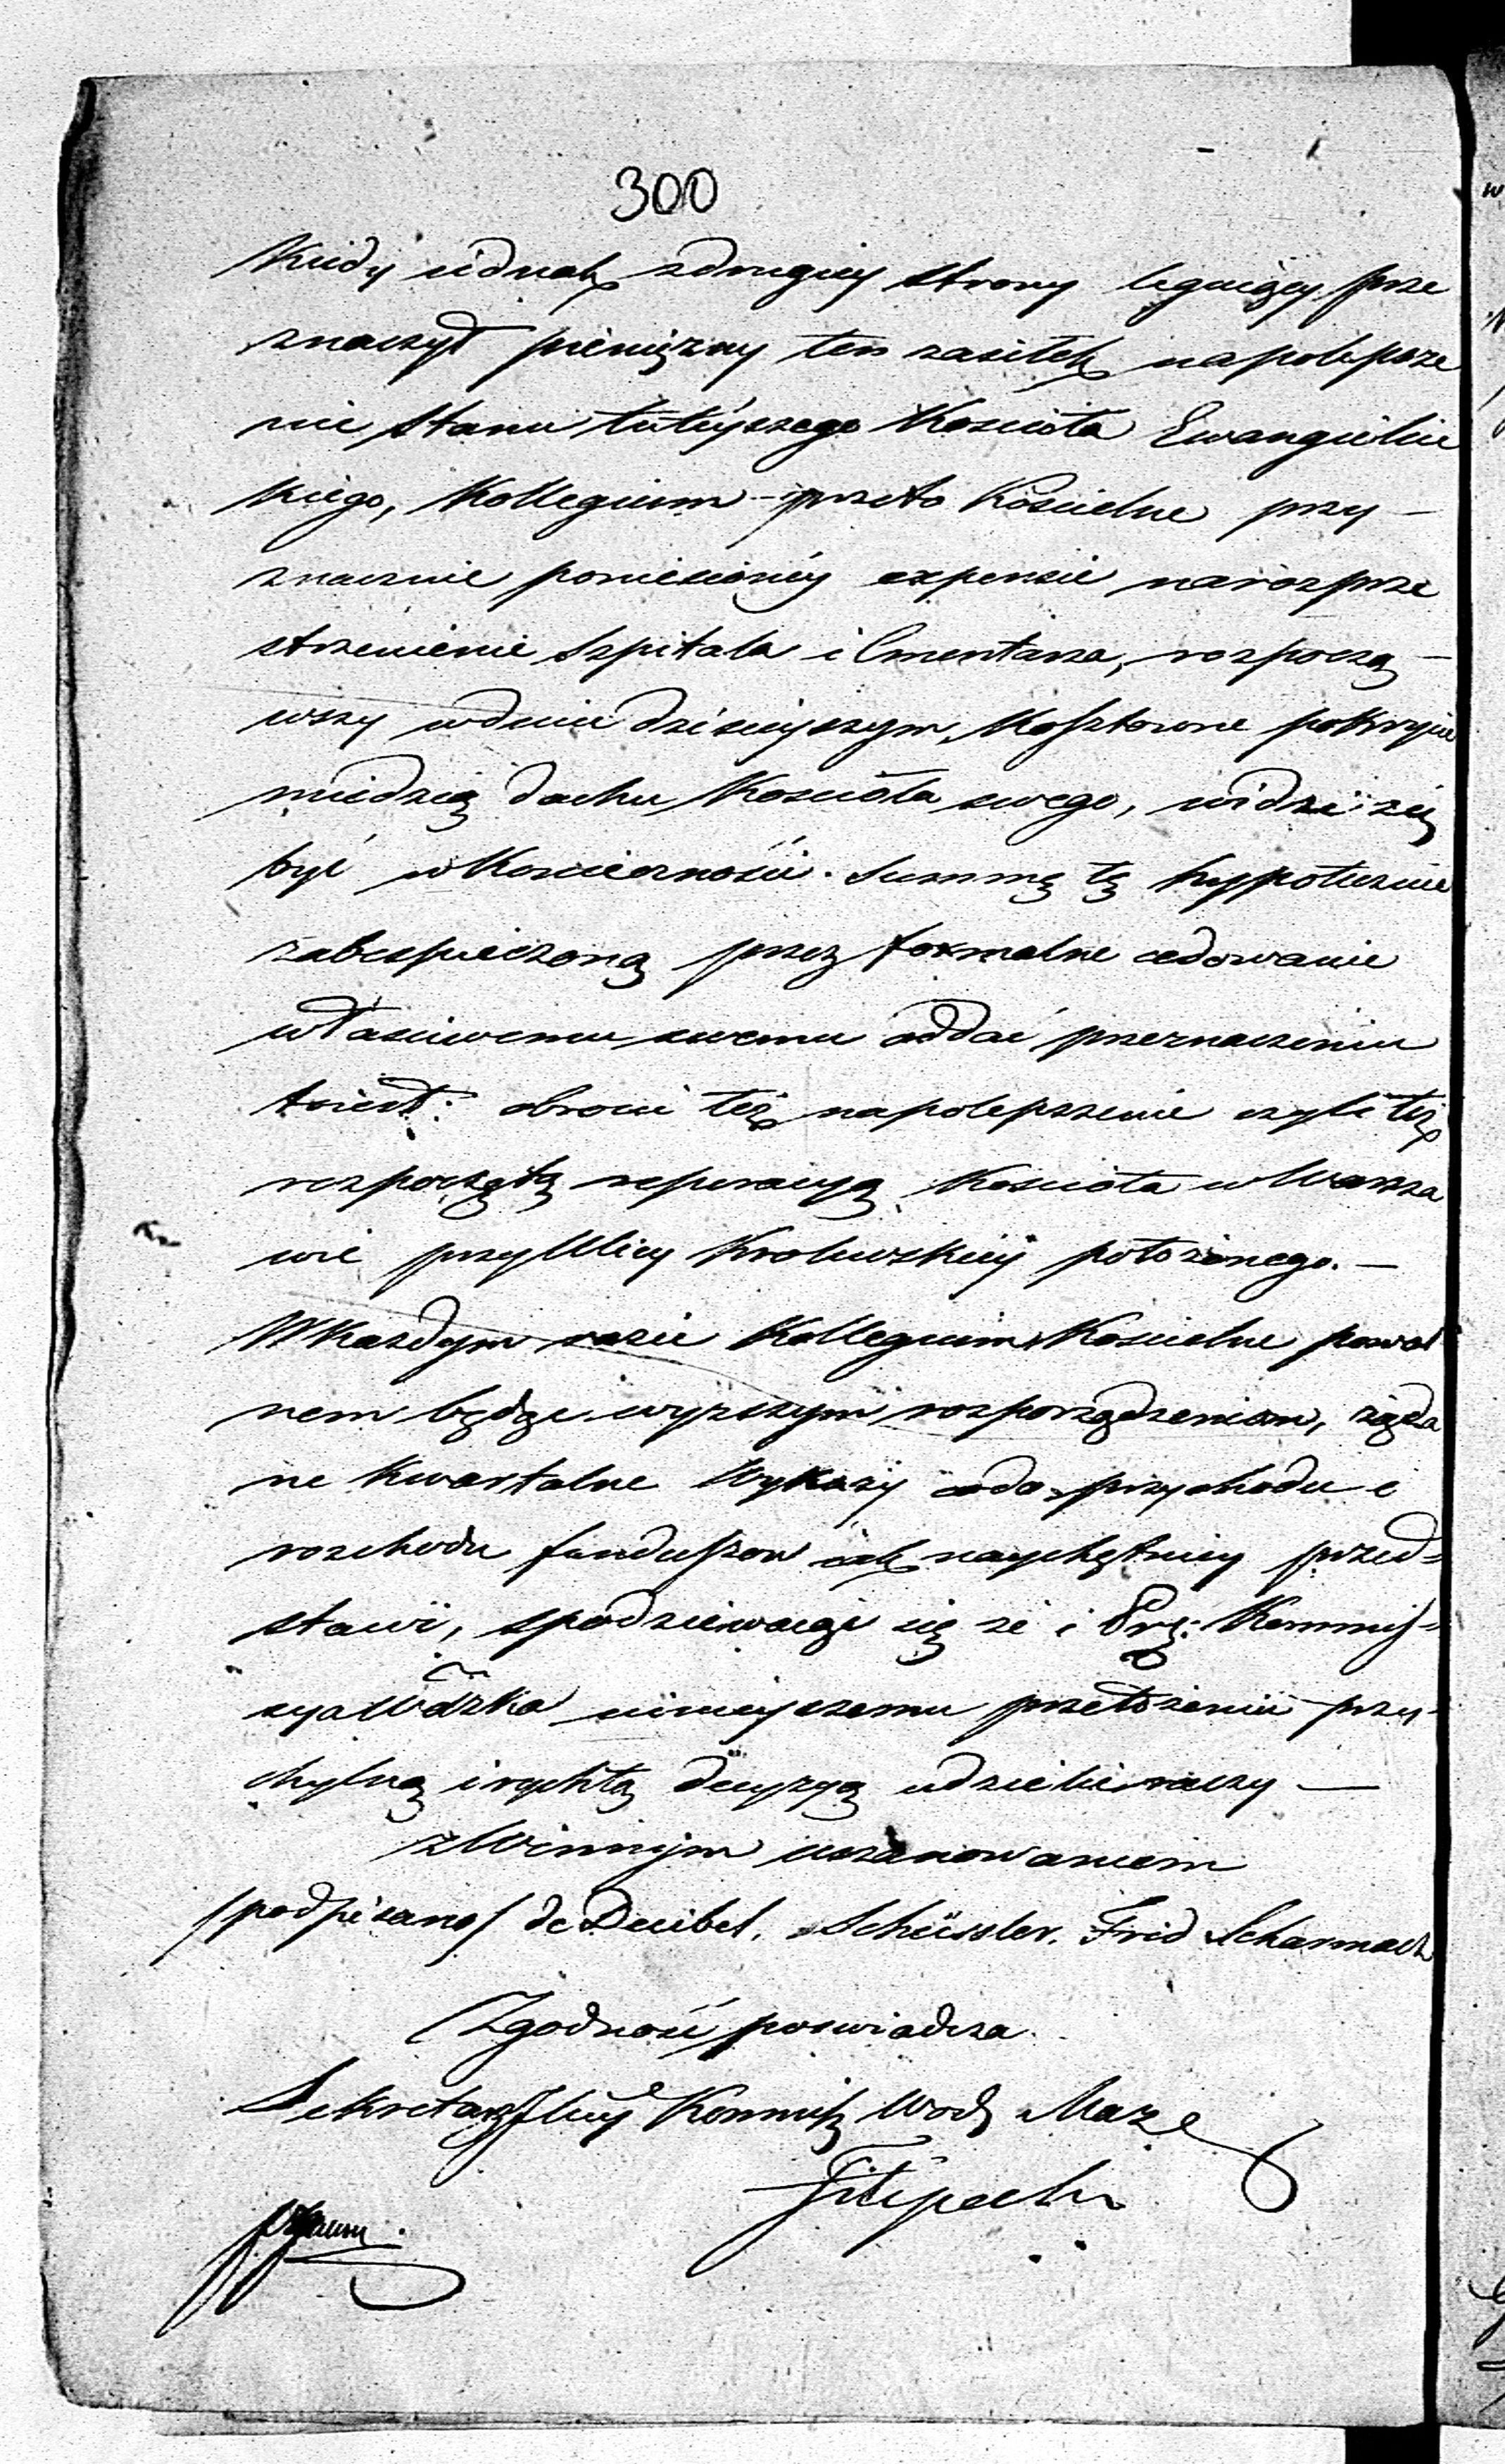 300
Kiedy iednak zdrugiey strony leguiący prze
znaczył pieniężny ten zasiłek napolepsze
nie stanu tuteyszego Kościoła Ewangielic
kiego, Kollegium przeto Kościelne przy
znacznie poniesioney expensie narozprze
strzenienie Szpitala i Cmentarza, rozpocző
wszy wdniu dzisieyszym Kosztowne pokrycie
miedzią dachu Kościoła swego, widzi się
być w Konieczności Summę tę hypotecznie
zabespieczoną przez formalne cedowanie
właściwemu swemu oddać przeznaczeniu
t. iest: obrocić też napolepszenie czyli też
rozpoczętą reperacyą Kościoła w Warsza
wie przy Ulicy Krolewskiey położonego. —
W Każdym razie Kollegium Kościelne powol
nem będąc wyższym rozporządzeniom, żąda
ne Kwartalne Wykazy co do przychodu i
rozchodu funduszow iak naychętniey przed=
stawi, spodziewając się że i Prz: Kommis=
sya Wdzka ninieyszemu przełożeniu przy=
chylną i rychłą decyzyą udzielić raczy —
z Winnym uszanowaniem
/podpisano/ de Deibel. Schüssler. Frid Scharmach
Zgodność poswiadcza
Sekretarz Jlny Kommisz Wodz Maze
Filipecki